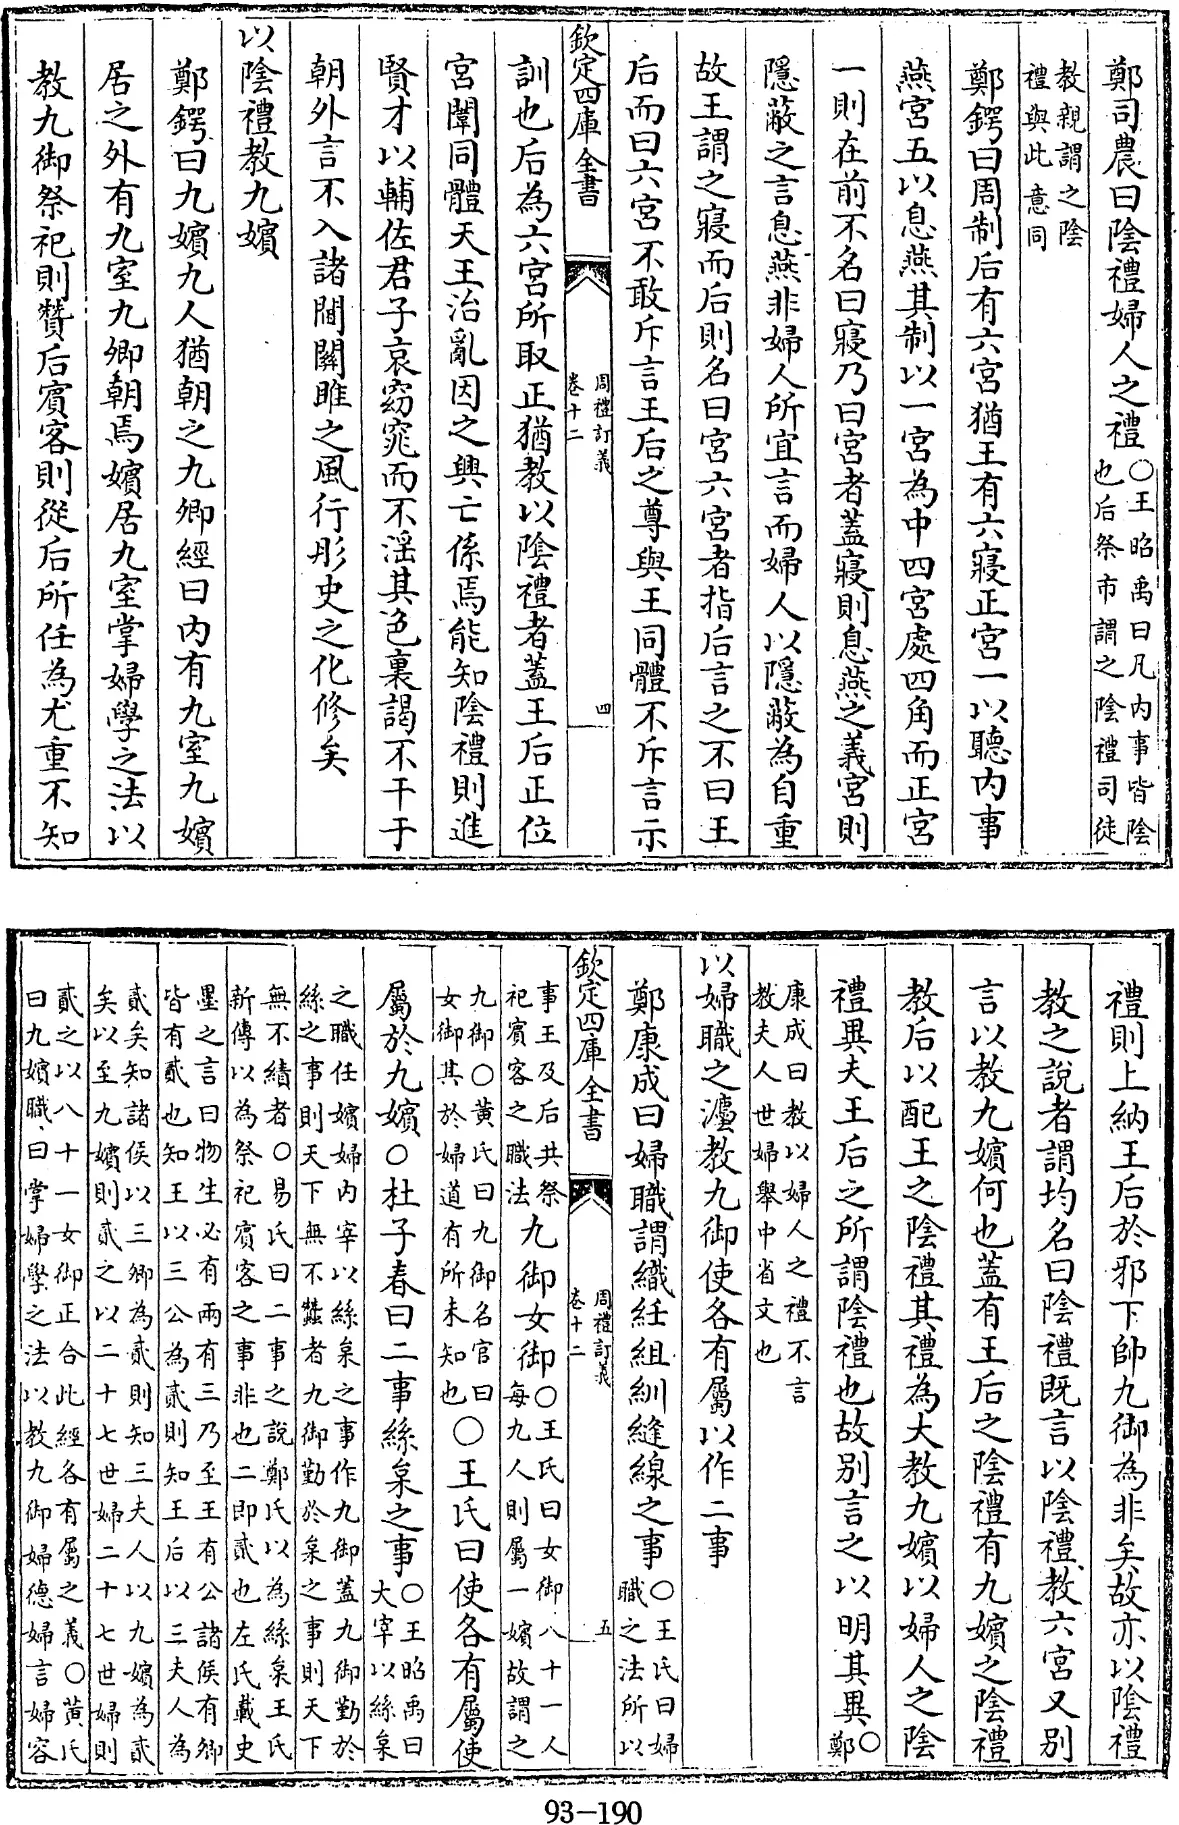 鄭司農曰陰禮婦人之禮○王昭禹曰凡内事皆陰
也后祭市謂之陰禮司徒
教親謂之陰
禮與此意同
鄭鍔曰周制后有六宮猶王有六寢正宮一以聽内事
燕宮五以息燕其制以一宮為中四宮處四角而正宮
一則在前不名曰寢乃曰宮者蓋寢則息燕之義宮則
隱蔽之言息燕非婦人所宜言而婦人以隱蔽為自重
故王謂之寢而后則名曰宮六宮者指后言之不曰王
后而曰六宮不敢斥言王后之尊與王同體不斥言示
欽定四庫全書
周禮訂義
卷十二
四
訓也后為六宮所取正猶教以陰禮者蓋王后正位
宮闈同體天王治亂因之興亡係焉能知陰禮則進
賢才以輔佐君子哀窈窕而不淫其色裏謁不干于
朝外言不入諸閫關雎之風行彤史之化修矣
以陰禮教九嬪
鄭鍔曰九嬪九人猶朝之九卿經曰内有九室九嬪
居之外有九室九卿朝焉嬪居九室掌婦學之法以
教九御祭祀則贊后賓客則從后所任為尤重不知
禮則上納王后於邪下帥九御為非矣故亦以陰禮
教之說者謂均名曰陰禮既言以陰禮教六宮又別
言以教九嬪何也蓋有王后之陰禮有九嬪之陰禮
教后以配王之陰禮其禮為大教九嬪以婦人之陰
禮異夫王后之所謂陰禮也故別言之以明其異○
鄭
康成曰教以婦人之禮不言
教夫人世婦舉中省文也
以婦職之灋教九御使各有屬以作二事
鄭康成曰婦職謂織紝組紃縫線之事○王氏曰婦
職之法所以
欽定四庫全書
周禮訂義
卷十二
五
事王及后共祭
祀賓客之職法
九御女御○王氏曰女御八十一人
每九人則屬一嬪故謂之
九御○黃氏曰九御名官曰
女御其於婦道有所未知也
○王氏曰使各有屬使
屬於九嬪○杜子春曰二事絲枲之事○王昭禹曰
大宰以絲枲
之職任嬪婦内宰以絲枲之事作九御蓋九御勤於
絲之事則天下無不蠶者九御勤於枲之事則天下
無不績者○易氏曰二事之說鄭氏以為絲枲王氏
新傳以為祭祀賓客之事非也二即貳也左氏載史
墨之言曰物生必有兩有三乃至王有公諸侯有卿
皆有貳也知王以三公為貳則知王后以三夫人為
貳矣知諸侯以三卿為貳則知三夫人以九嬪為貳
矣以至九嬪則貳之以二十七世婦二十七世婦則
貳之以八十一女御正合此經各有屬之義○黃氏
曰九嬪職曰掌婦學之法以教九御婦德婦言婦容
93-190